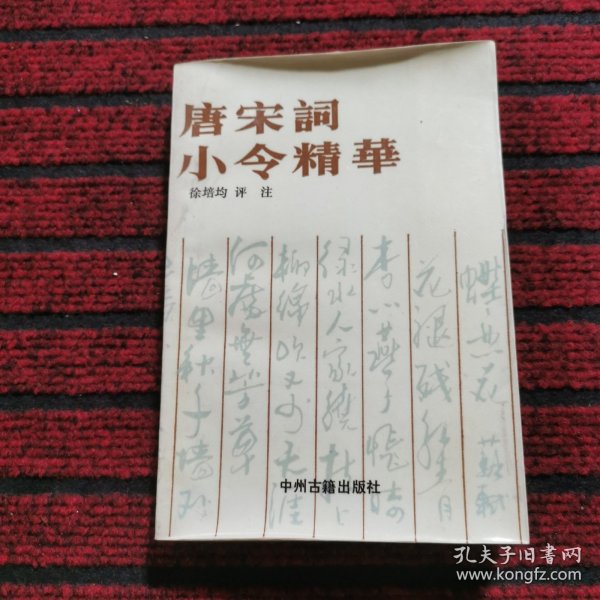 唐宋詞
小令精華
徐培均 评 注
蝶恋花 苏轼
花褪残红青
杏小燕子飞时
绿水人家绕枝上
柳绵吹又少天涯
何处无芳草
墙里秋千墙外
中州古籍出版社
孔夫子旧书网
www.kongfz.com